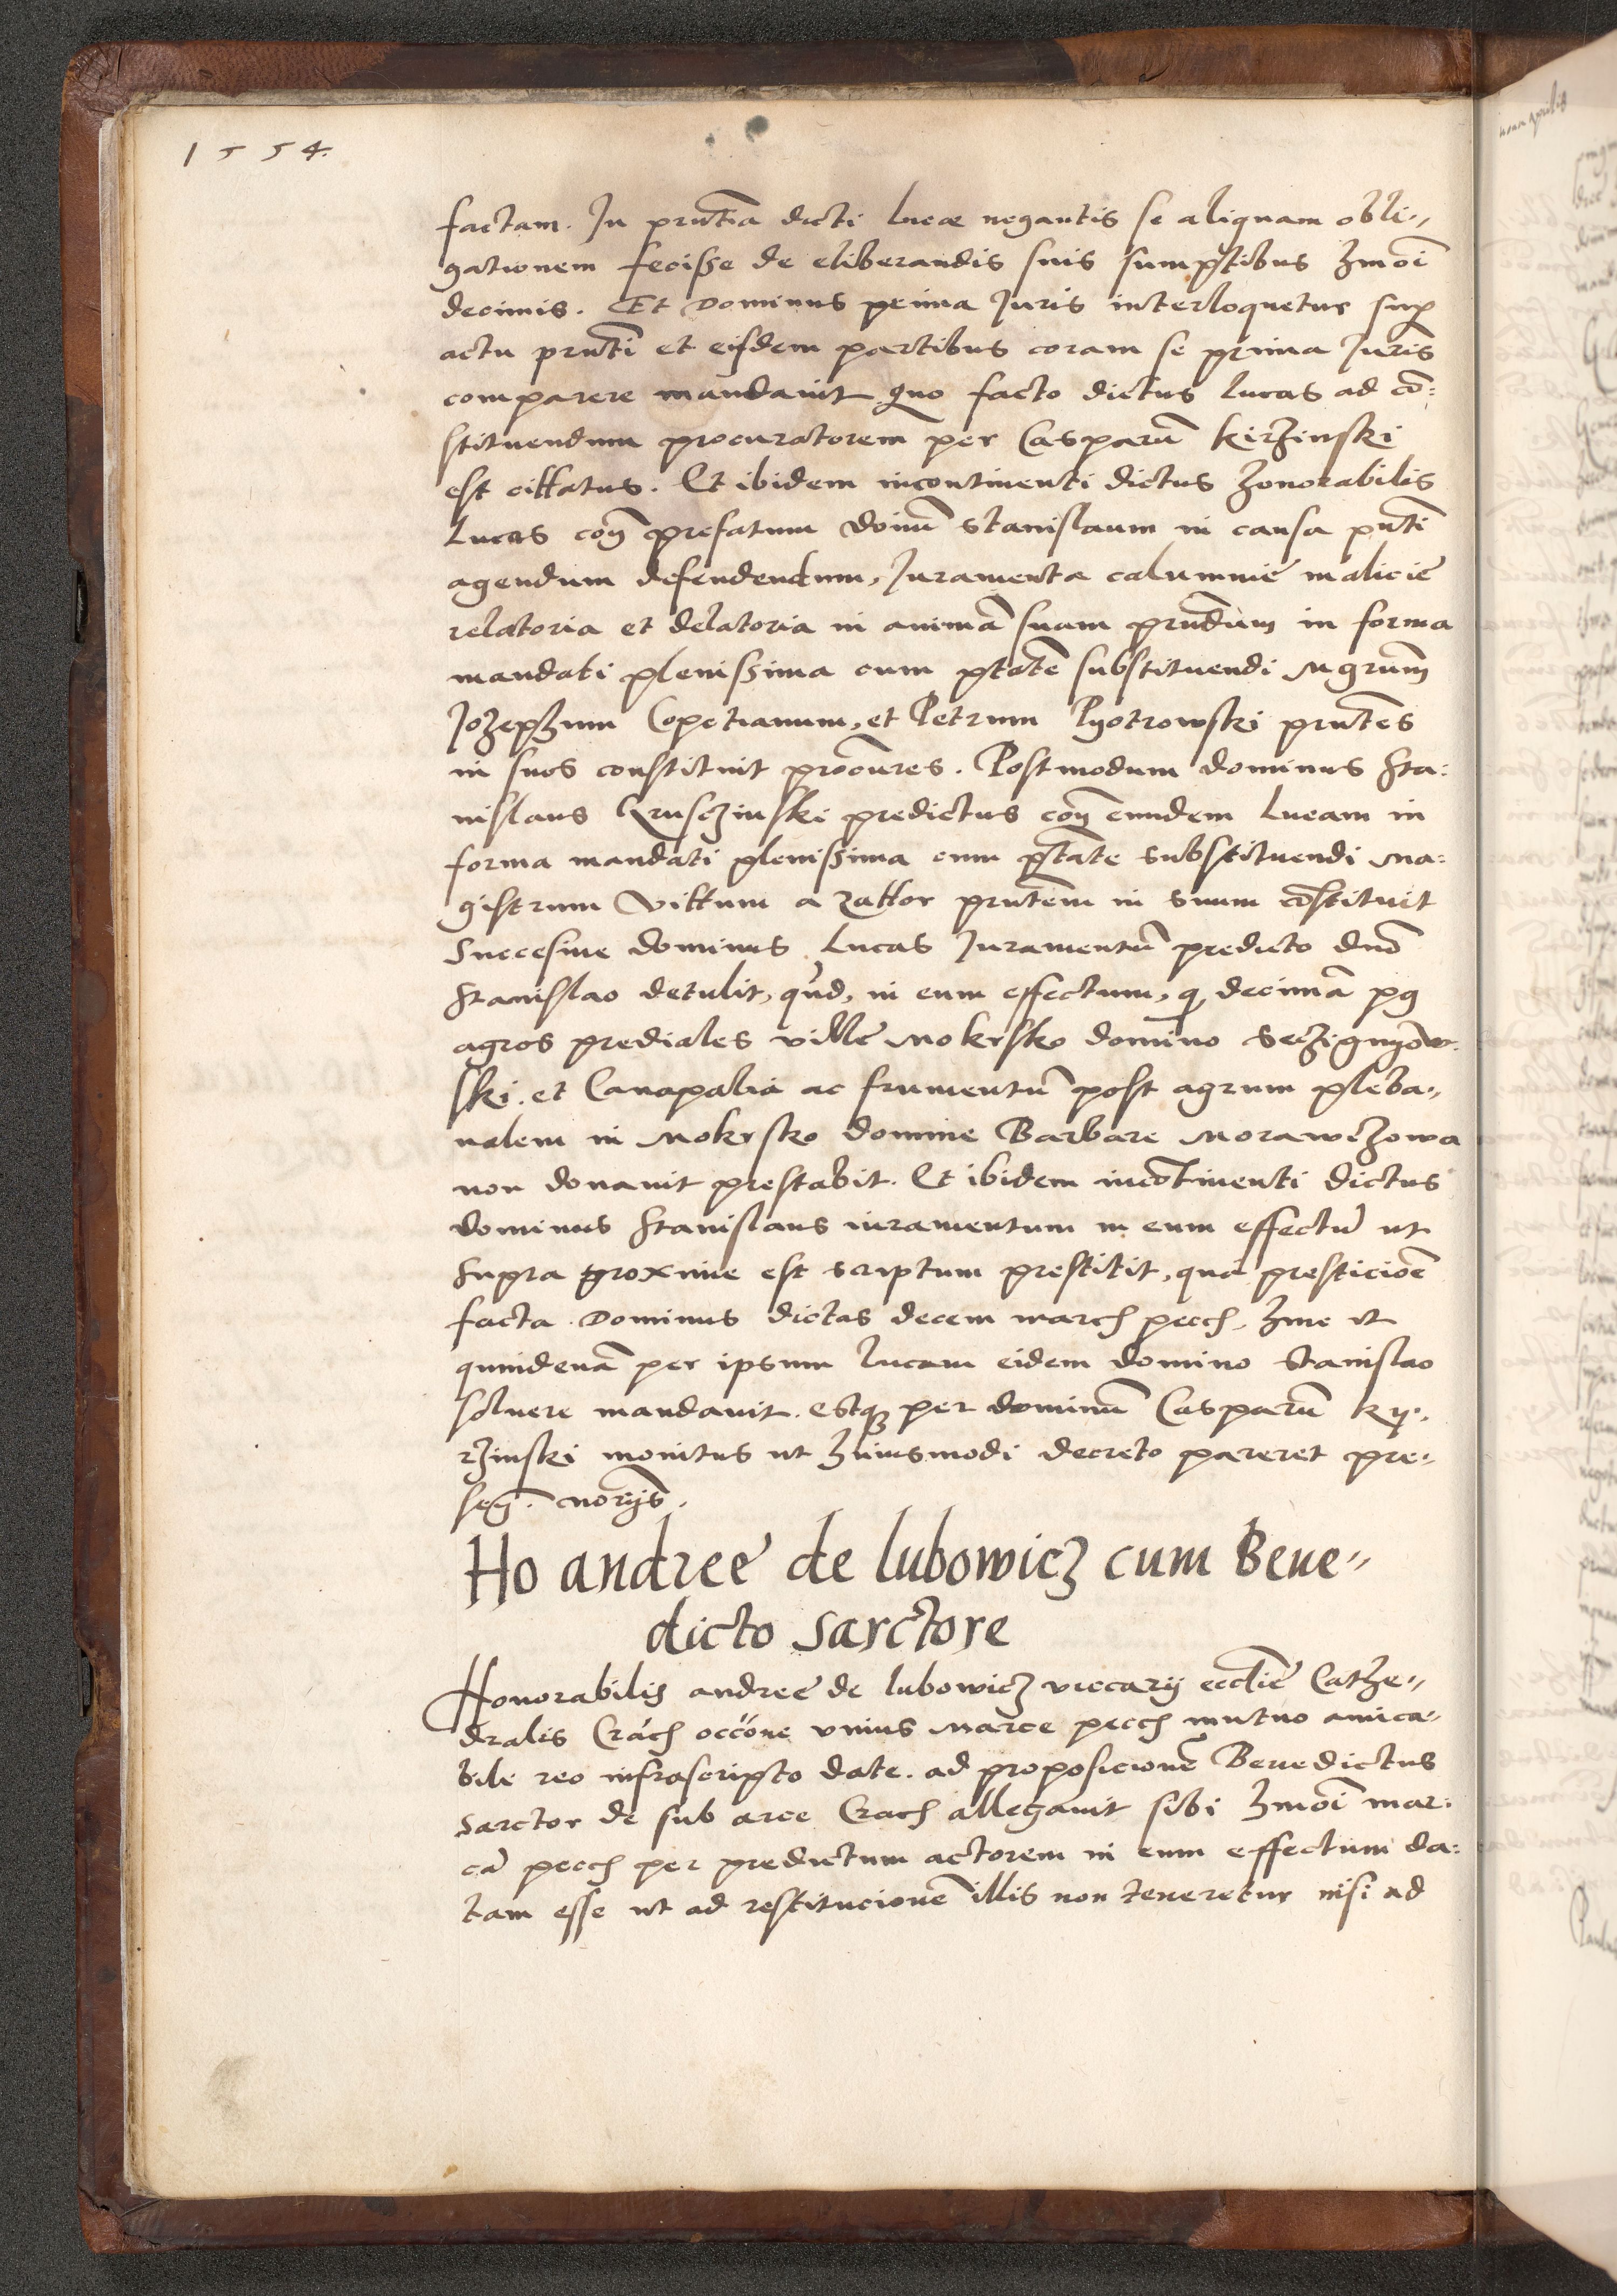 1554.
factam. In pñtia dicti Lucæ negantis se aliquam obli„
gationem fecisse de eliberandis suis sumptibus hmoi
decimis. Et Dominus prima Iuris interloquetur sup
actu pñti et eisdem partibus coram se prima Iuris
comparere mandavit Quo facto dictus Lucas ad cō:
stituendum procuratorem per Casparū Kirzinski
est cittatus. Et ibidem incontinenti dictus honorabilis
Lucas con prefatum dnum Stanislaum in causa pnti
agendum defendendum, Iuramenta calumnie malicie
relatoria et delatoria in animā suam prndum in forma
mandati plenissima cum ptate substituendi Mgrum
Iozephum Copetianum, et Petrum Pyotrowski pñtes
in suos constituit procures. Postmodum dominus Sta:
nislaus Gruszinski predictus con eundem Lucam in
forma mandati plenissima cum ptate substituendi Ma:
gistrum Vittum a Zattor pñtem in suum cōstituit
Succesive dominus Lucas Iuramentū predicto dno
Stanislao detulit, qud, in eum effectum, q decimā pg
agros prediales ville Mokrsko domino Seczignyow:
ski. et Canapalia ac frumentū post agrum pleba„
nalem in Mokrsko domine Barbare Morawczowa
non donavit prestabit. Et ibidem incōtinenti dictus
dominus Stanislaus iuramentum in eum effectū ut
supra proxime est scriptum prestitit, qua presticioē
facta. Dominus dictas decem march pecch, hinc ut
quindenā per ipsum Lucam eidem domino Stanislao
solvere mandavit. estq3 per dominū Casparū Ky„
rzinski monitus ut huiusmodi decreto pareret pre„
sen. norijs.
Ho andree de lubowicz cum Bene„
dicto Sarctore
Honorabilis andree de lubowicz viccarij ecclie Cathe„
dralis Crach occōne vnius Marce pecch mutuo amica„
bili reo infrascripto date. ad proposicionē Benedictus
Sarctor de sub arce Crach allegavit sibi hmoi mar:
cā pecch per predictum actorem in eum effectum da:
tam esse ut ad restitucionē illis non teneretur nisi ad